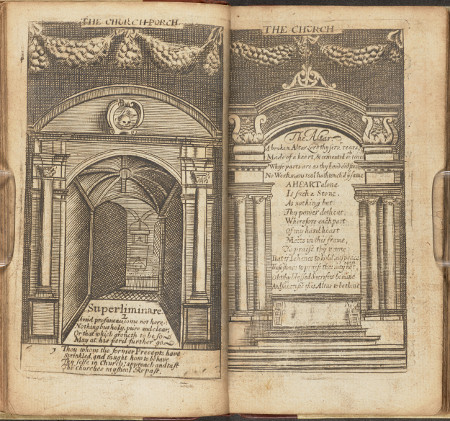 THE CHURCH-PORCH
Superliminare
Avoid profaneness come not here:
Nothing but holy, pure and clear,
Or that which groneth to be so
May at his peril further go.
Thou whom the former Precepts have
Sprinkled, and taught how to behave
Thy selfe in Church; approach and tast
The churches mysticall repast.
THE CHURCH
The Altar
A broken Altar Lord thy rears,
Made of a heart, & cemented
Whose parts are as thy hand did
No Workmans tool hath touch'd
A HEART alone
Is such a Stone,
As nothing but
Thy power doth cut.
Wherefore each part
Of my hard heart
Meets in this frame,
To praise thy name
That if I chance to hold my peace
These stones to praise thee may
thy blessed sacrifice be mine
And sanctify this Altar to be thine